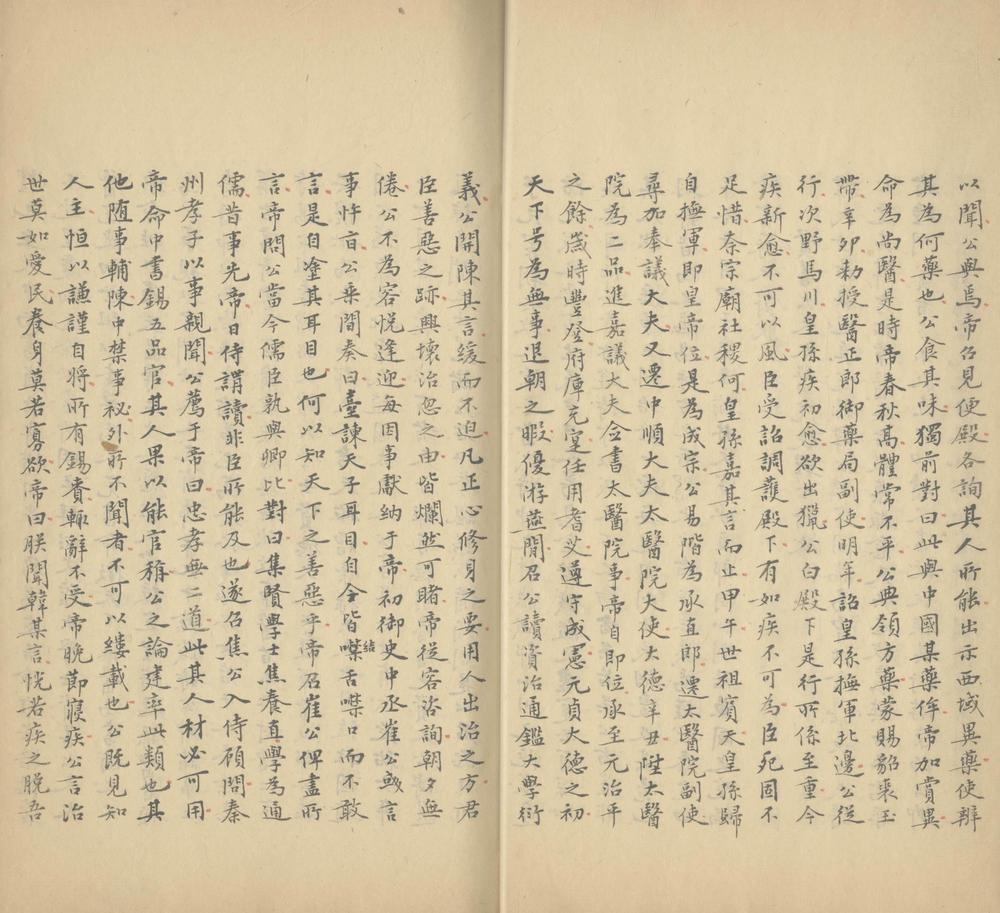 以聞公與焉帝召見便殿各詢其人所能出示西域異藥使辨
其為何藥也公食其味獨前對曰此與中國某藥侔帝加賞異
命為尚醫是時帝春秋髙體常不平公典領方藥蒙賜貂裘玉
帶辛卯勑授醫正郎御藥局副使明年詔皇孫撫軍北邊公從
行次野馬川皇孫疾初愈欲出獵公白殿下是行所係至重今
疾新愈不可以風臣受詔調護殿下有如疾不可為臣死固不
足惜奈宗廟社稷何皇孫嘉其言而止甲午世祖賓天皇孫歸
自撫軍即皇帝位是為成宗公易階為承直郎遷太醫院副使
尋加奉議大夫又遷中順大夫太醫院大使大德辛丑陞太醫
院為二品進嘉議大夫僉書太醫院事帝自即位承至元治平
之餘歲時豐登府庫充寔任用耆艾遵守成憲元貞大德之初
天下号為無事退朝之暇優游燕閒召公讀資治通鑑大學衍
義公開陳其言緩而不迫凡正心修身之要用人出治之方君
臣善惡之跡興壞治忽之由皆爛然可睹帝從容咨詢朝夕無
倦公不為容悅逢迎每因事獻納于帝初御史中丞崔公彧言
事忤㫖公乘間奏曰臺諫天子耳目自今皆噤舌噤口而不敢
結
言是自塗其耳目也何以知天下之善惡乎帝召崔公俾盡所
言帝問公當今儒臣孰與卿比對曰集賢學士焦養直學為通
儒昔事先帝日侍講讀非臣所能及也遂召焦公入侍顧問秦
州孝子以事親聞公薦于帝曰忠孝無二道此其人材必可用
帝命中書錫五品官其人果以能官稱公之論建率此類也其
他隨事輔陳中禁事祕外所不聞者不可以縷載也公既見知
人主恒以謙謹自將所有錫賚輒辭不受帝晚節寢疾公言治
世莫如愛民養身莫若寡欲帝曰朕聞韓某言恍若疾之脫吾